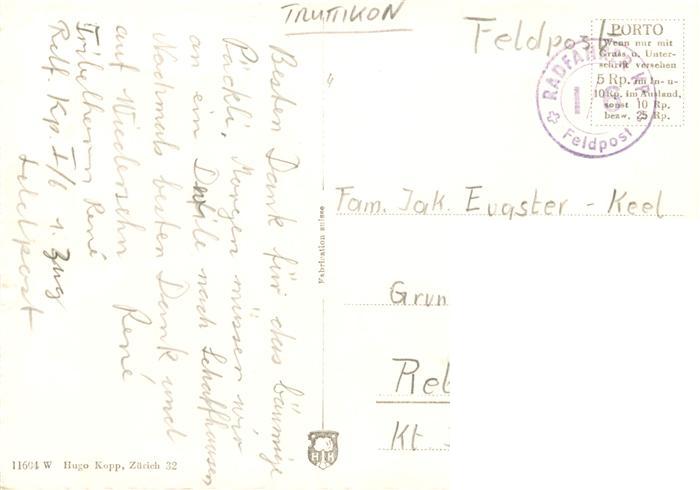 TRUTTIKON
Besten Dank für das bäumige
Päckli, Morgen müssen wir
an ein Defile nach Schaffhausen
Nochmals besten Dank und
auf Wiedersehn René
Tribelhorn René
Radf. Kp I/6 1. Zug
Feldpost
11604 W Hugo Kopp, Zürich 32
Fabrication suisse
H K
Feldpost
PORTO
Wenn nur mit
Gruss u. Unter-
schrift versehen
5 Rp. im In- u-
10 Rp. im Ausland,
sonst 10 Rp.
bezw. 25 Rp.
RADFAHRER KP.
Feldpost
Fam. Jak. Eugster - Keel
Grun
Reb
Kt.